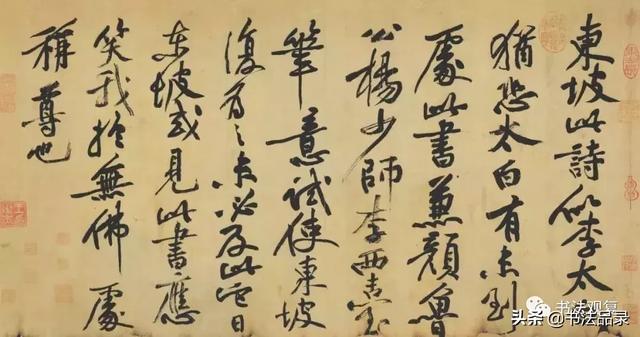 東坡此詩似李太白
猶恐太白有未到
處此書兼顏魯
公楊少師李西臺
筆意試使東坡
復為之未必及此它日
東坡或見此書應
笑我於無佛處
稱尊也
书法观复
头条 @书法品录